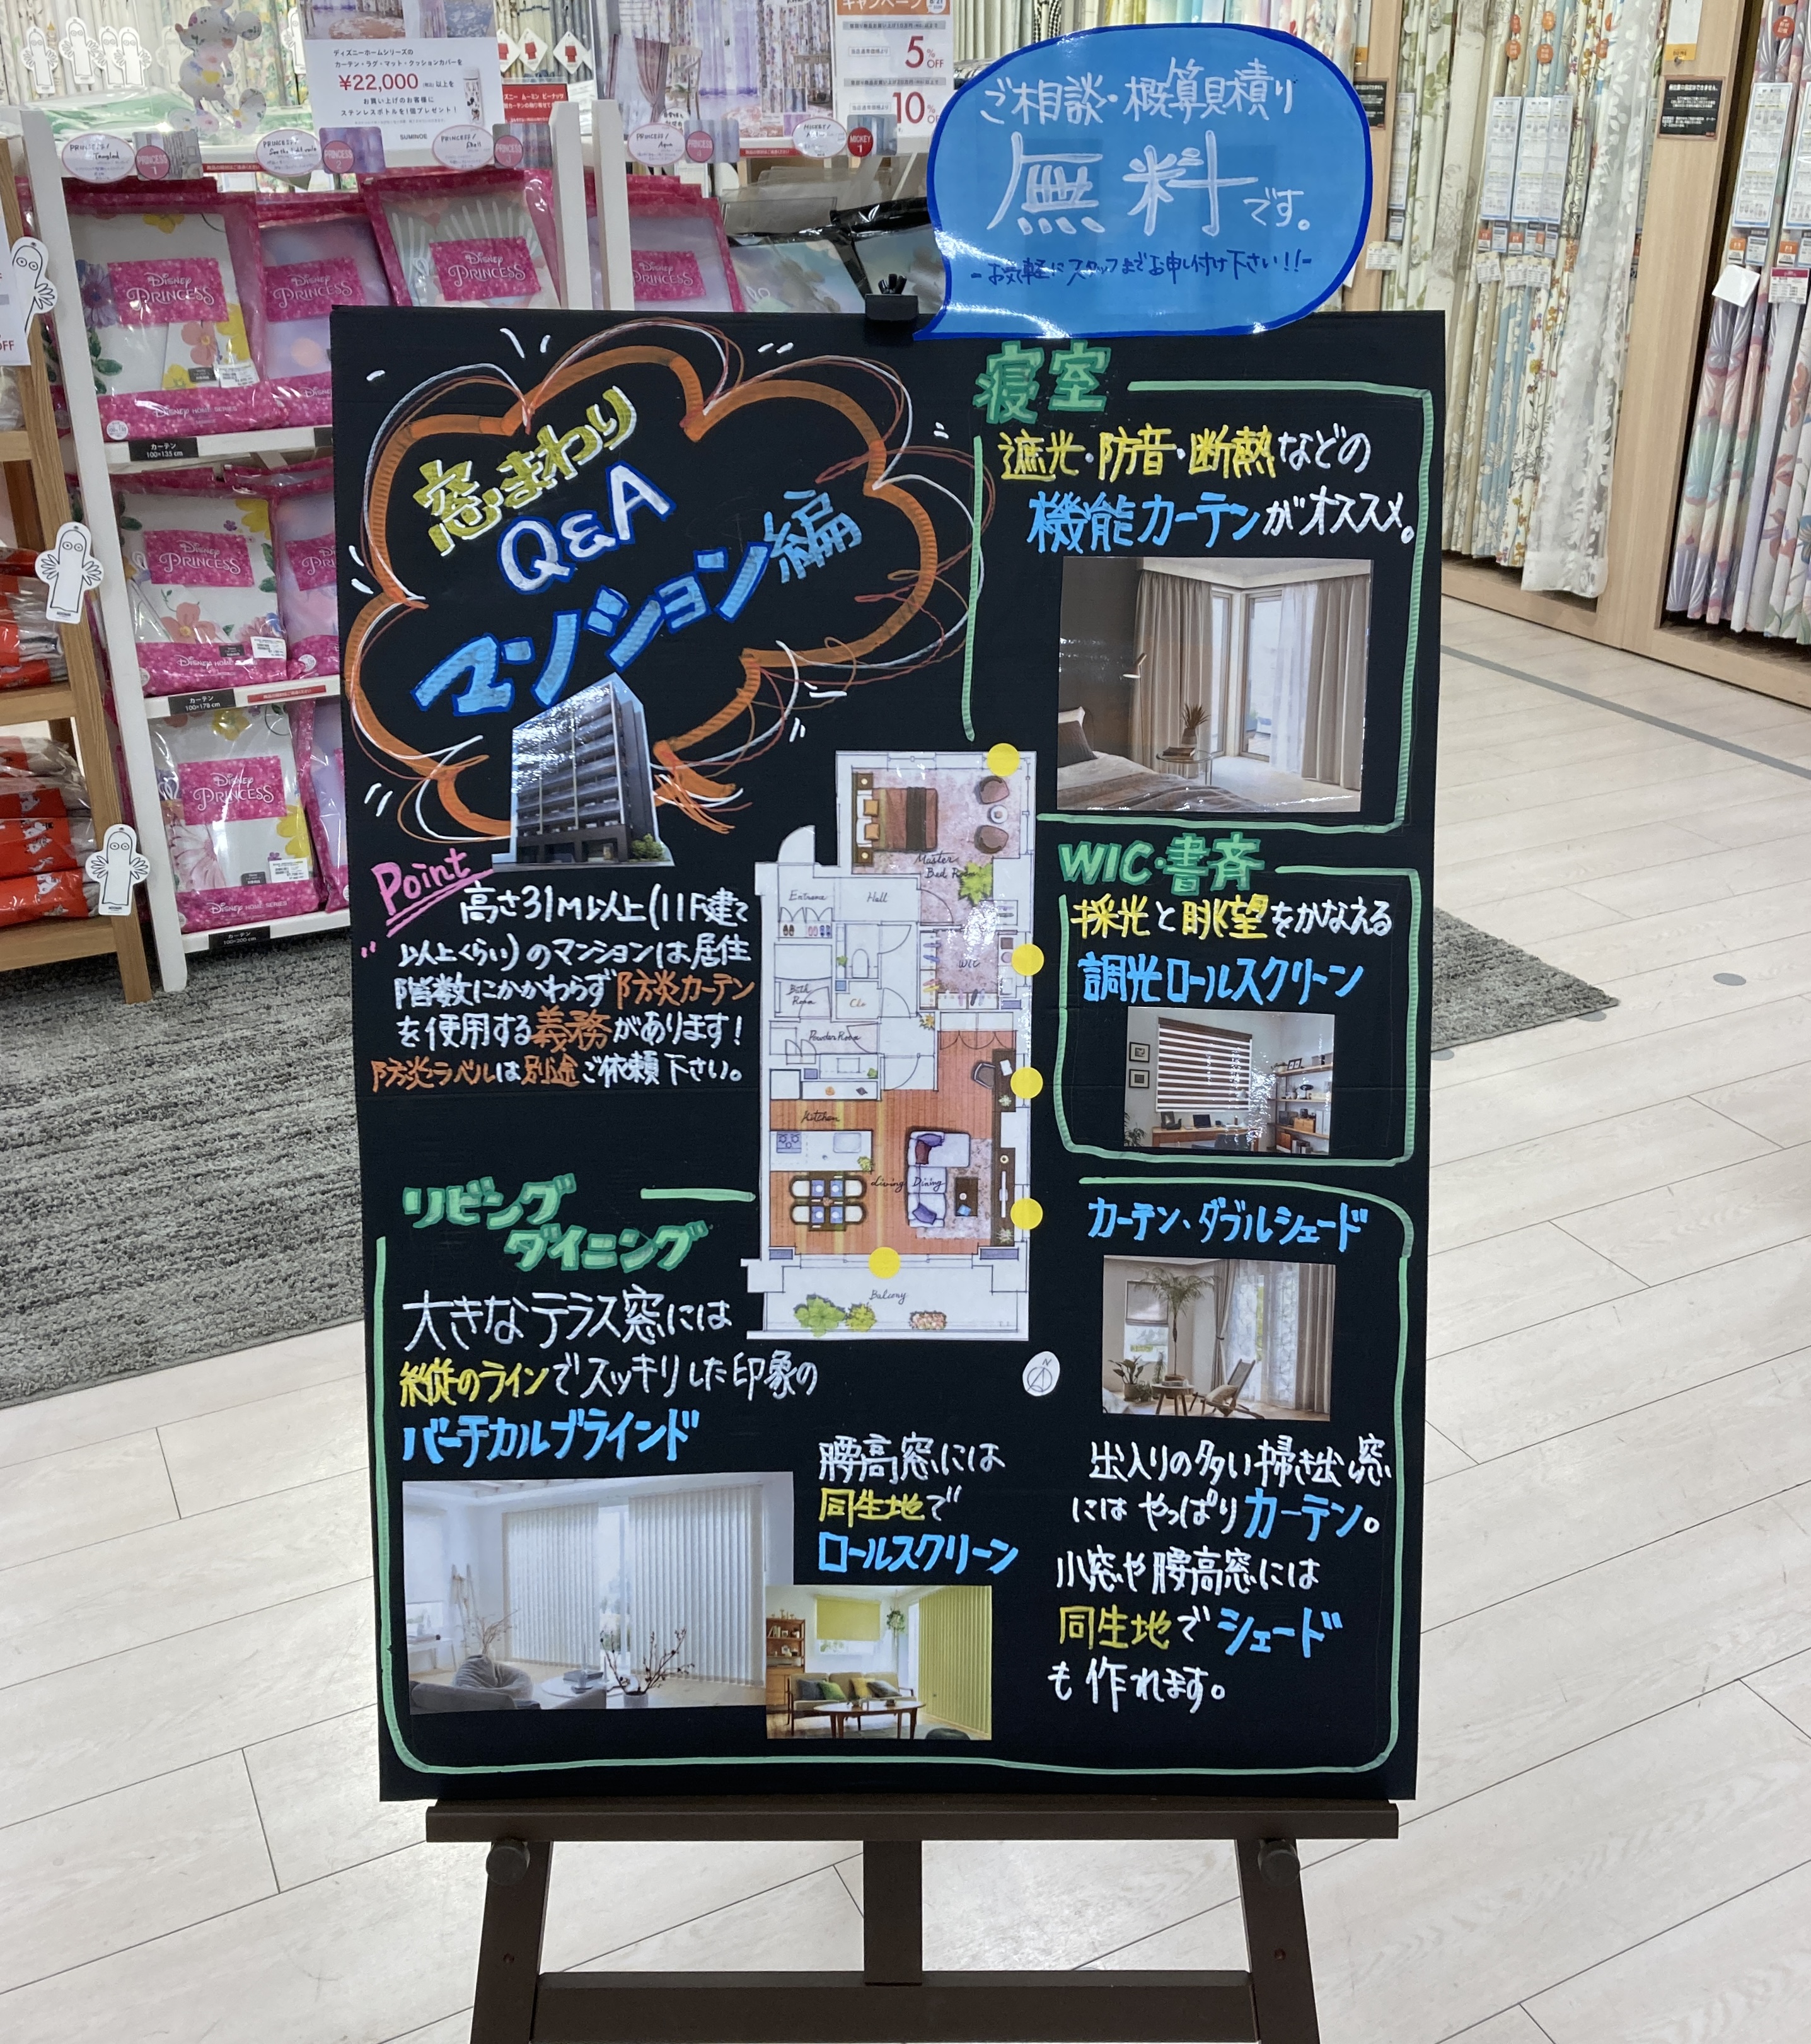 ディズニーホームシリーズの
カーテン・ラグ・マット・クッションカバーを
¥22,000 (税込) 以上を
お買い上げのお客様に
ステンレスボトルを1個プレゼント!
SUMINOE
キャンペーン
5%OFF
10%OFF
PRINCESS/
Tangled
PRINCESS
1
PRINCESS/
PRINCESS
2
PRINCESS/
PRINCESS/
MICKEY
1
Disney
PRINCESS
Disney
PRINCESS
Disney
PRINCESS
Disney
PRINCESS
DISNEY HOME SERIES
カーテン
100×135 cm
Disney
PRINCESS
カーテン
100×178 cm
Disney
PRINCESS
DISNEY HOME SERIES
カーテン
100×200 cm
OFF
ご相談・概算見積り
無料です。
-お気軽にスタッフまでお申し付け下さい!!-
窓まわり
Q&A
マンション編
Point
高さ31M以上(11F建て
以上くらい)のマンションは居住
階数にかかわらず防炎カーテン
を使用する義務があります!
防炎ラベルは別途ご依頼下さい。
寝室
遮光・防音・断熱などの
機能カーテンがオススメ。
WIC・書斉
採光と眺望をかなえる
調光ロールスクリーン
Master
Bed Room
Entrance
Hall
WIC
Bath
Room
Clo
Powder Room
Kitchen
Living Dining
Balcony
N
リビング
ダイニング
大きなテラス窓には
縦のラインでスッキリした印象の
バーチカルブラインド
腰高窓には
同生地で
ロールスクリーン
カーテン、ダブルシェード
出入りの多い掃き出し窓
にはやっぱりカーテン。
小窓や腰高窓には
同生地でシェード
も作れます。